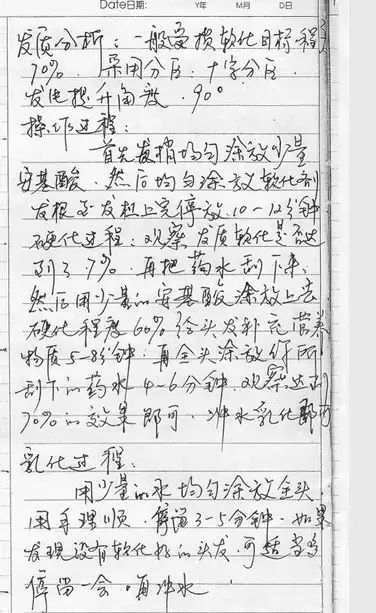 Date日期: Y年 M月 D日
发质分析: 一般受损软化目标程度
70%. 采用分区: 十字分区.
发片提升角度. 90°
操作过程:
首先发梢均匀涂放少量
安基酸. 然后均匀涂放软化剂
发根至发粒上完停放10-12分钟
硬化过程: 观察发质软化是否达
到了7%. 再把药水刮下来.
然后用少量的安基酸涂放上去
硬化程度60%给头发补充营养
物质5-8分钟. 再全头涂放你所
刮下的药水4-6分钟. 观察达到
70%的效果即可. 冲水乳化即可
乳化过程:
用少量的水均匀涂放全头.
用手理顺. 停留3-5分钟. 如果
发现没有软化好的头发. 可适当
停留一会. 再冲水